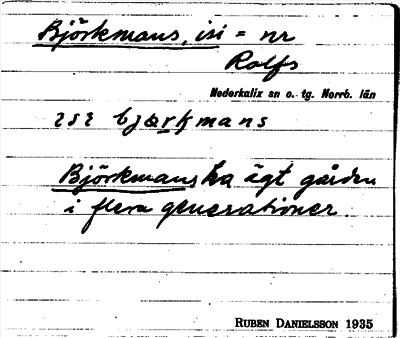 Björkmans, isi = nr
Rolfs
Nederkalix sn o. tg. Norrb. län
ɪsɪ bjœrkmans
Björkmans ha ägt gården
i flera generationer.
RUBEN DANIELSSON 1935